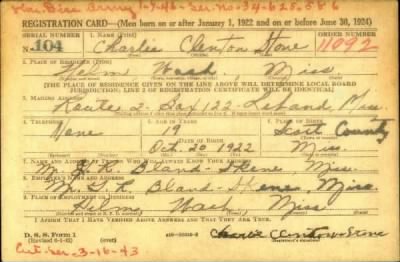 Hon. Disc Army 1-7-46 - Ser. no - 34-625-586
REGISTRATION CARD—(Men born on or after January 1, 1922 and on or before June 30, 1924)
SERIAL NUMBER 1. NAME (Print) ORDER NUMBER
N 104 Charlie Clenton Stone 11092
2. PLACE OF RESIDENCE (Print)
Helm Wash Miss
[THE PLACE OF RESIDENCE GIVEN ON THE LINE ABOVE WILL DETERMINE LOCAL BOARD
JURISDICTION; LINE 2 OF REGISTRATION CERTIFICATE WILL BE IDENTICAL]
3. MAILING ADDRESS
Route 2- Box 122- Leland Miss.
4. TELEPHONE 5. AGE IN YEARS 6. PLACE OF BIRTH
None 19 Scott County
DATE OF BIRTH
Oct. 20 1922 Miss.
7. NAME AND ADDRESS OF PERSON WHO WILL ALWAYS KNOW YOUR ADDRESS
Bland - Skene, Miss.
8. EMPLOYER'S NAME AND ADDRESS
Mr. Bland - Skene, Miss.
9. PLACE OF EMPLOYMENT OR BUSINESS
Helm Wash Miss
I AFFIRM THAT I HAVE VERIFIED ABOVE ANSWERS AND THAT THEY ARE TRUE.
D. S. S. Form 1
(Revised 6-1-42) Charlie Clenton Stone
(Registrant's signature)
Ent. ser. 3-16-43